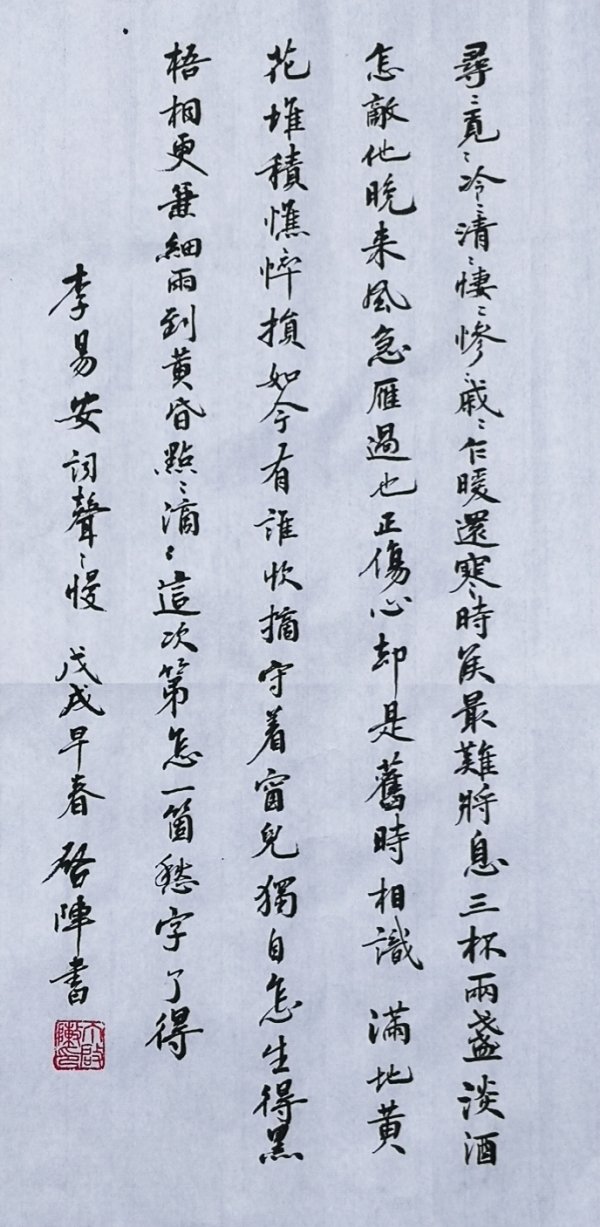 尋〻覓〻冷〻清〻悽〻慘〻戚〻乍暖還寒時候最難將息三杯兩盞淡酒
怎敵他晚來風急雁過也正傷心却是舊時相識 滿地黃
花堆積憔悴損如今有誰忺摘守着窗兒獨自怎生得黑
梧桐更兼細雨到黃昏點〻滴〻這次第怎一箇愁字了得
李易安詞聲〻慢 戊戌早春 啓陣書